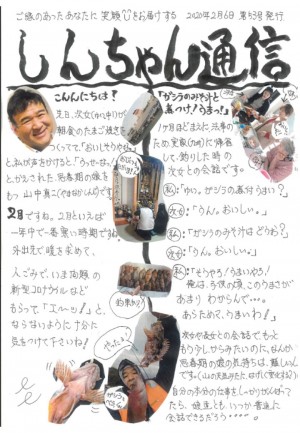 ご縁のあったあなたに笑顔をお届けする 2020年2月6日 第53号発行
しんちゃん通信
こんにちは!
先日、次女(ゆい中1)が
朝食のたまご焼きを
つくってて「おいしそうやね」
と私が声をかけると「うっせーな!」
とかえされた、思春期の娘を
もつ 山中真二(やまなかしんじ)です。
2月ですね。2月といえば
一年中で一番寒い時期です
外出先で暖を求めて、
人ごみで、いま問題の
新型コロナウイルスなど
もらって「エ~ッ!」と、
ならないように十分に
気をつけて下さいね!
「ガシラのみそ汁と
煮つけ!うまっ!」
1ヶ月ほどまえに、法事の
ため実家に帰省
して、釣りした時の
次女との会話です。
私:「ゆい。ガシラの煮付うまい?」
次女:「うん。おいしい。」
私:「ガシラのみそ汁はどお?」
次女:「うん。おいしい。」
私:「そうやろ!うまいやろ!
俺は、子供の頃、このうまさが
あまり わからんで・・・。
あらためて、うまいわ!」
次女や長女との会話でも、もっと
もりあがってみたいのに、なんか
思春期の娘の気持ちは、難しいんで
す。
自分の本分の仕事をしっかりがんばって
たら、娘達とも、いつか普通に
会話できるだろう・・・・・。